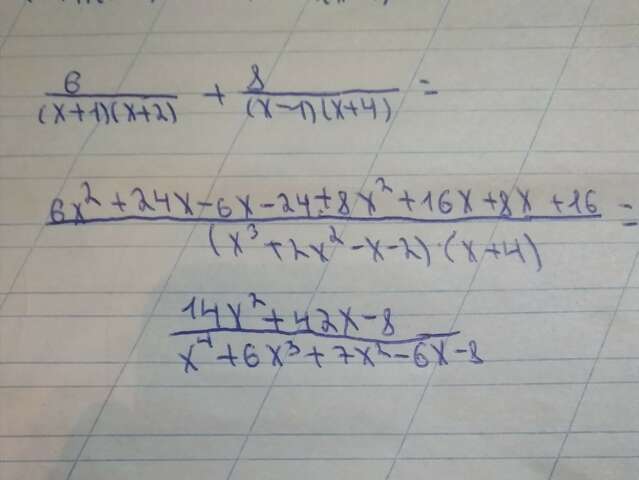 6/((x+1)(x+2)) + 8/((x-1)(x+4)) =
(6x² + 24x - 6x - 24 + 8x² + 16x + 8x + 16)/((x³ + 2x² - x - 2) · (x+4)) =
(14x² + 42x - 8)/(x⁴ + 6x³ + 7x² - 6x - 8)